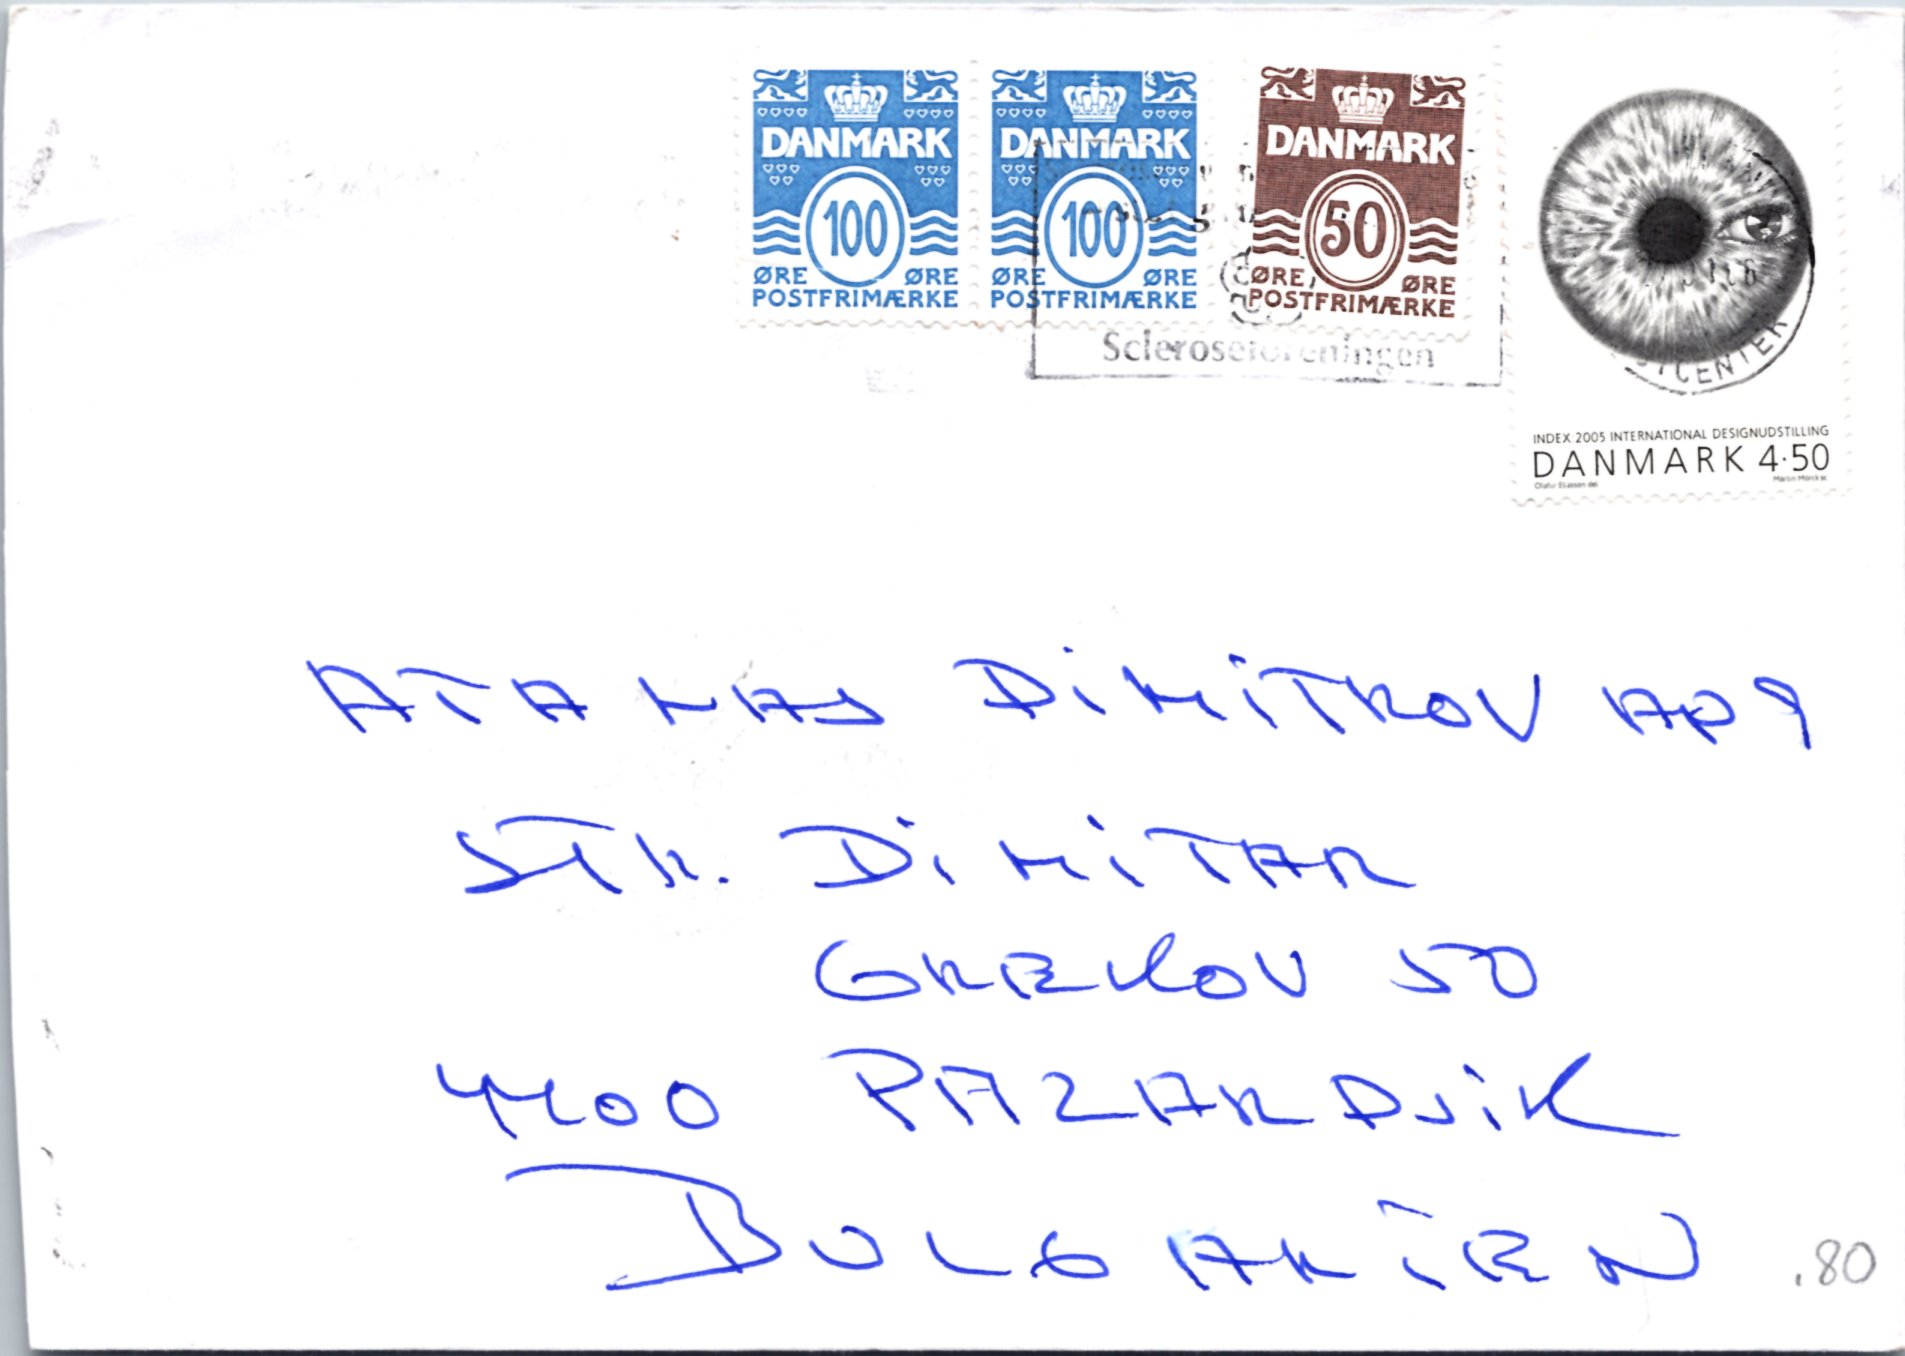 DANMARK
100
ØRE ØRE
POSTFRIMÆRKE
DANMARK
100
ØRE ØRE
POSTFRIMÆRKE
DANMARK
50
ØRE ØRE
POSTFRIMÆRKE
Scleroseforeningen
INDEX 2005 INTERNATIONAL DESIGNUDSTILLING
DANMARK 4·50
Olafur Eliasson del Martin Mörck sc
ATANAS DIMITROV AP 9
STR. DIMITAR
GREKOV 50
4400 PAZARDJIK
BULGARIEN
.80